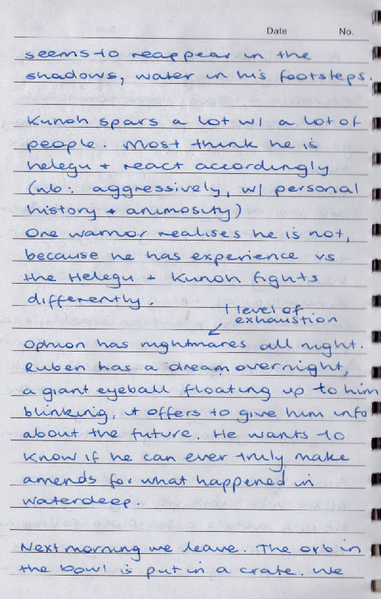 Date No.
seems to reappear in the
shadows, water in his footsteps.
Kunoh spars a lot w/ a lot of
people. Most think he is
helegu + react accordingly
(nb: aggressively, w/ personal
history + animosity)
One warrior realises he is not,
because he has experience vs
the Helegu + Kunoh fights
differently.
1 level of
exhaustion
Ophion has nightmares all night.
Ruben has a dream overnight,
a giant eyeball floating up to him
blinking, it offers to give him info
about the future. He wants to
know if he can ever truly make
amends for what happened in
waterdeep.
Next morning we leave. The orb in
the bowl is put in a crate. We